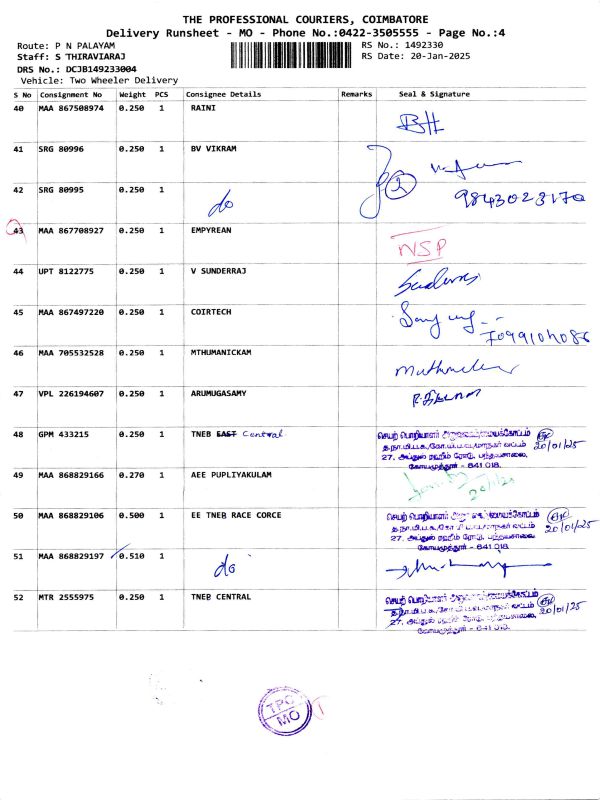 THE PROFESSIONAL COURIERS, COIMBATORE
Delivery Runsheet - MO - Phone No.:0422-3505555 - Page No.:4
Route: P N PALAYAM
RS No.: 1492330
Staff: S THIRAVIARAJ
RS Date: 20-Jan-2025
DRS No.: DCJB149233004
Vehicle: Two Wheeler Delivery
S No Consignment No Weight PCS Consignee Details Remarks Seal & Signature
40 MAA 867508974 0.250 1 RAINI
41 SRG 80996 0.250 1 BV VIKRAM 2
42 SRG 80995 0.250 1 do 9843023170
43 MAA 867708927 0.250 1 EMPYREAN NSP
44 UPT 8122775 0.250 1 V SUNDERRAJ
45 MAA 867497220 0.250 1 COIRTECH
46 MAA 705532528 0.250 1 MTHUMANICKAM
47 VPL 226194607 0.250 1 ARUMUGASAMY
48 GPM 433215 0.250 1 TNEB EAST Central 20/01/25
செயற் பொறியாளர்
27, அப்துல் ரஹீம் ரோடு, பந்தயசாலை,
கோயமுத்தூர் - 641 018.
49 MAA 868829166 0.270 1 AEE PUPLIYAKULAM
50 MAA 868829106 0.500 1 EE TNEB RACE CORCE 20/01/25
செயற் பொறியாளர்
27, அப்துல் ரஹீம் ரோடு, பந்தயசாலை,
கோயமுத்தூர் - 641 018.
51 MAA 868829197 0.510 1 do
52 MTR 2555975 0.250 1 TNEB CENTRAL 20/01/25
செயற் பொறியாளர்
27, அப்துல் ரஹீம் ரோடு, பந்தயசாலை,
கோயமுத்தூர் - 641 018.
TPC
MO